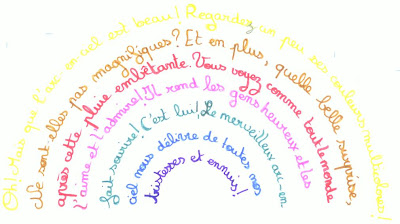 Oh! Mais que l'arc-en-ciel est beau! Regardez un peu ses couleurs multicolores!
Ne sont-elles pas magnifiques? Et en plus, quelle belle surprise,
après cette pluie embêtante. Vous voyez comme tout le monde
l'aime et l'admire! Il rend les gens heureux et les
fait sourire! C'est lui! Le merveilleux arc-en
ciel nous délivre de toutes nos
tristesses et ennuis!